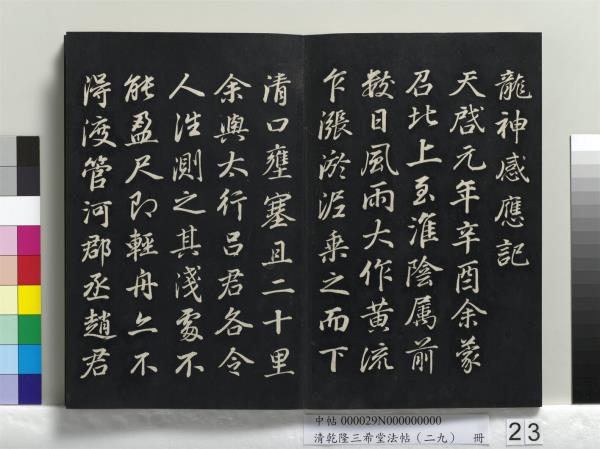 龍神感應記
天啓元年辛酉余蒙
召北上至淮陰属前
數日風雨大作黃流
乍漲淤泥乗之而下
清口壅塞且二十里
余與太行呂君各令
人往測之其淺處不
能盈尺即輕舟亦不
得渡管河郡丞趙君
中帖 000029N000000000
清乾隆三希堂法帖(二九) 冊
23